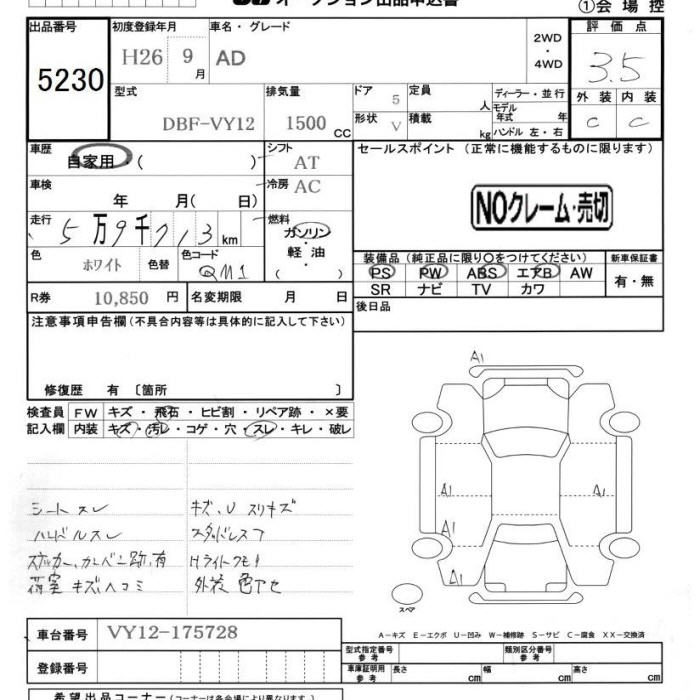 オークション出品申込書 ①会場控
出品番号 初度登録年月 車名・グレード 2WD・4WD 評価点
5230 H26 9月 AD 3.5
型式 排気量 ドア 5 定員 人 ディーラー・並行 外装 内装
DBF-VY12 1500 CC 形状 V 積載 kg モデル年式 年 ハンドル 左・右 C C
車歴 自家用・( ) シフト AT セールスポイント (正常に機能するものに限ります)
車検 年 月( 日) 冷房 AC
NOクレーム・売切
走行 5万9千713km 燃料 ガソリン・軽油
色 ホワイト 色替 色コード QM1
装備品 (純正品に限り○をつけてください) 新車保証書
PS PW ABS エアB AW 有・無
SR ナビ TV カワ
R券 10,850 円 名変期限 月 日 後日品
注意事項申告欄 (不具合内容等は具体的に記入して下さい)
修復歴 有 〔箇所 〕
検査員 FW キズ・飛石・ヒビ割・リペア跡・×要
記入欄 内装 キズ・汚レ・コゲ・穴・スレ・キレ・破レ
A1
A1 A1
A1
A1
シートスレ キズ、U スリキズ
ハンドルスレ スタッドレス
ステッカー、カンバン跡、有 Hライトクモリ
荷室 キズ、ヘコミ 外装 色アセ
スペア
A－キズ E－エクボ U－凹み W－補修跡 S－サビ C－腐食 XX－交換済
車台番号 VY12-175728
型式指定番号 参考 類別区分番号 参考
登録番号
車庫証明用 参考 長さ cm 幅 cm 高さ cm
希望出品コーナー (コーナーは各会場により異なります)